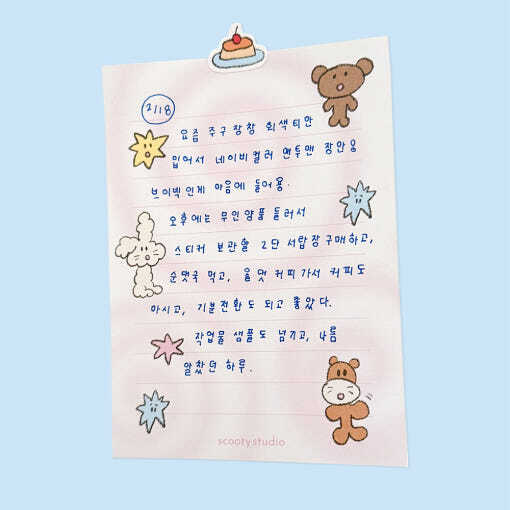 2/18
요즘 주구장창 회색티만
입어서 네이비컬러 맨투맨 장만용
브이넥인게 마음에 들어용.
오후에는 무인양품 들러서
스티커 보관할 2단 서랍장구매하고,
순댓국 먹고, 커피가서 커피도
마시고, 기분전환도 되고 좋았다.
작업물 샘플도 넘기고, 나름
알찼던 하루.
scooty.studio